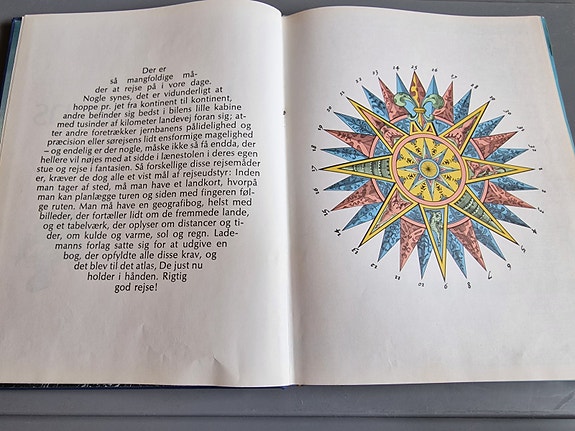 Der er
så mangfoldige må-
der at rejse på i vore dage.
Nogle synes, det er vidunderligt at
hoppe pr. jet fra kontinent til kontinent,
andre befinder sig bedst i bilens lille kabine
med tusinder af kilometer landevej foran sig; at-
ter andre foretrækker jernbanens pålidelighed og
præcision eller sørejsens lidt ensformige magelighed
– og endelig er der nogle, måske ikke så få endda, der
hellere vil nøjes med at sidde i lænestolen i deres egen
stue og rejse i fantasien. Så forskellige disse rejsemåder
er, kræver de dog alle et vist mål af rejseudstyr: Inden
man tager af sted, må man have et landkort, hvorpå
man kan planlægge turen og siden med fingeren føl-
ge ruten. Man må have en geografibog, helst med
billeder, der fortæller lidt om de fremmede lande,
og et tabelværk, der oplyser om distancer og ti-
der, om kulde og varme, sol og regn. Lade-
manns forlag satte sig for at udgive en
bog, der opfyldte alle disse krav, og
det blev til det atlas, De just nu
holder i hånden. Rigtig
god rejse!